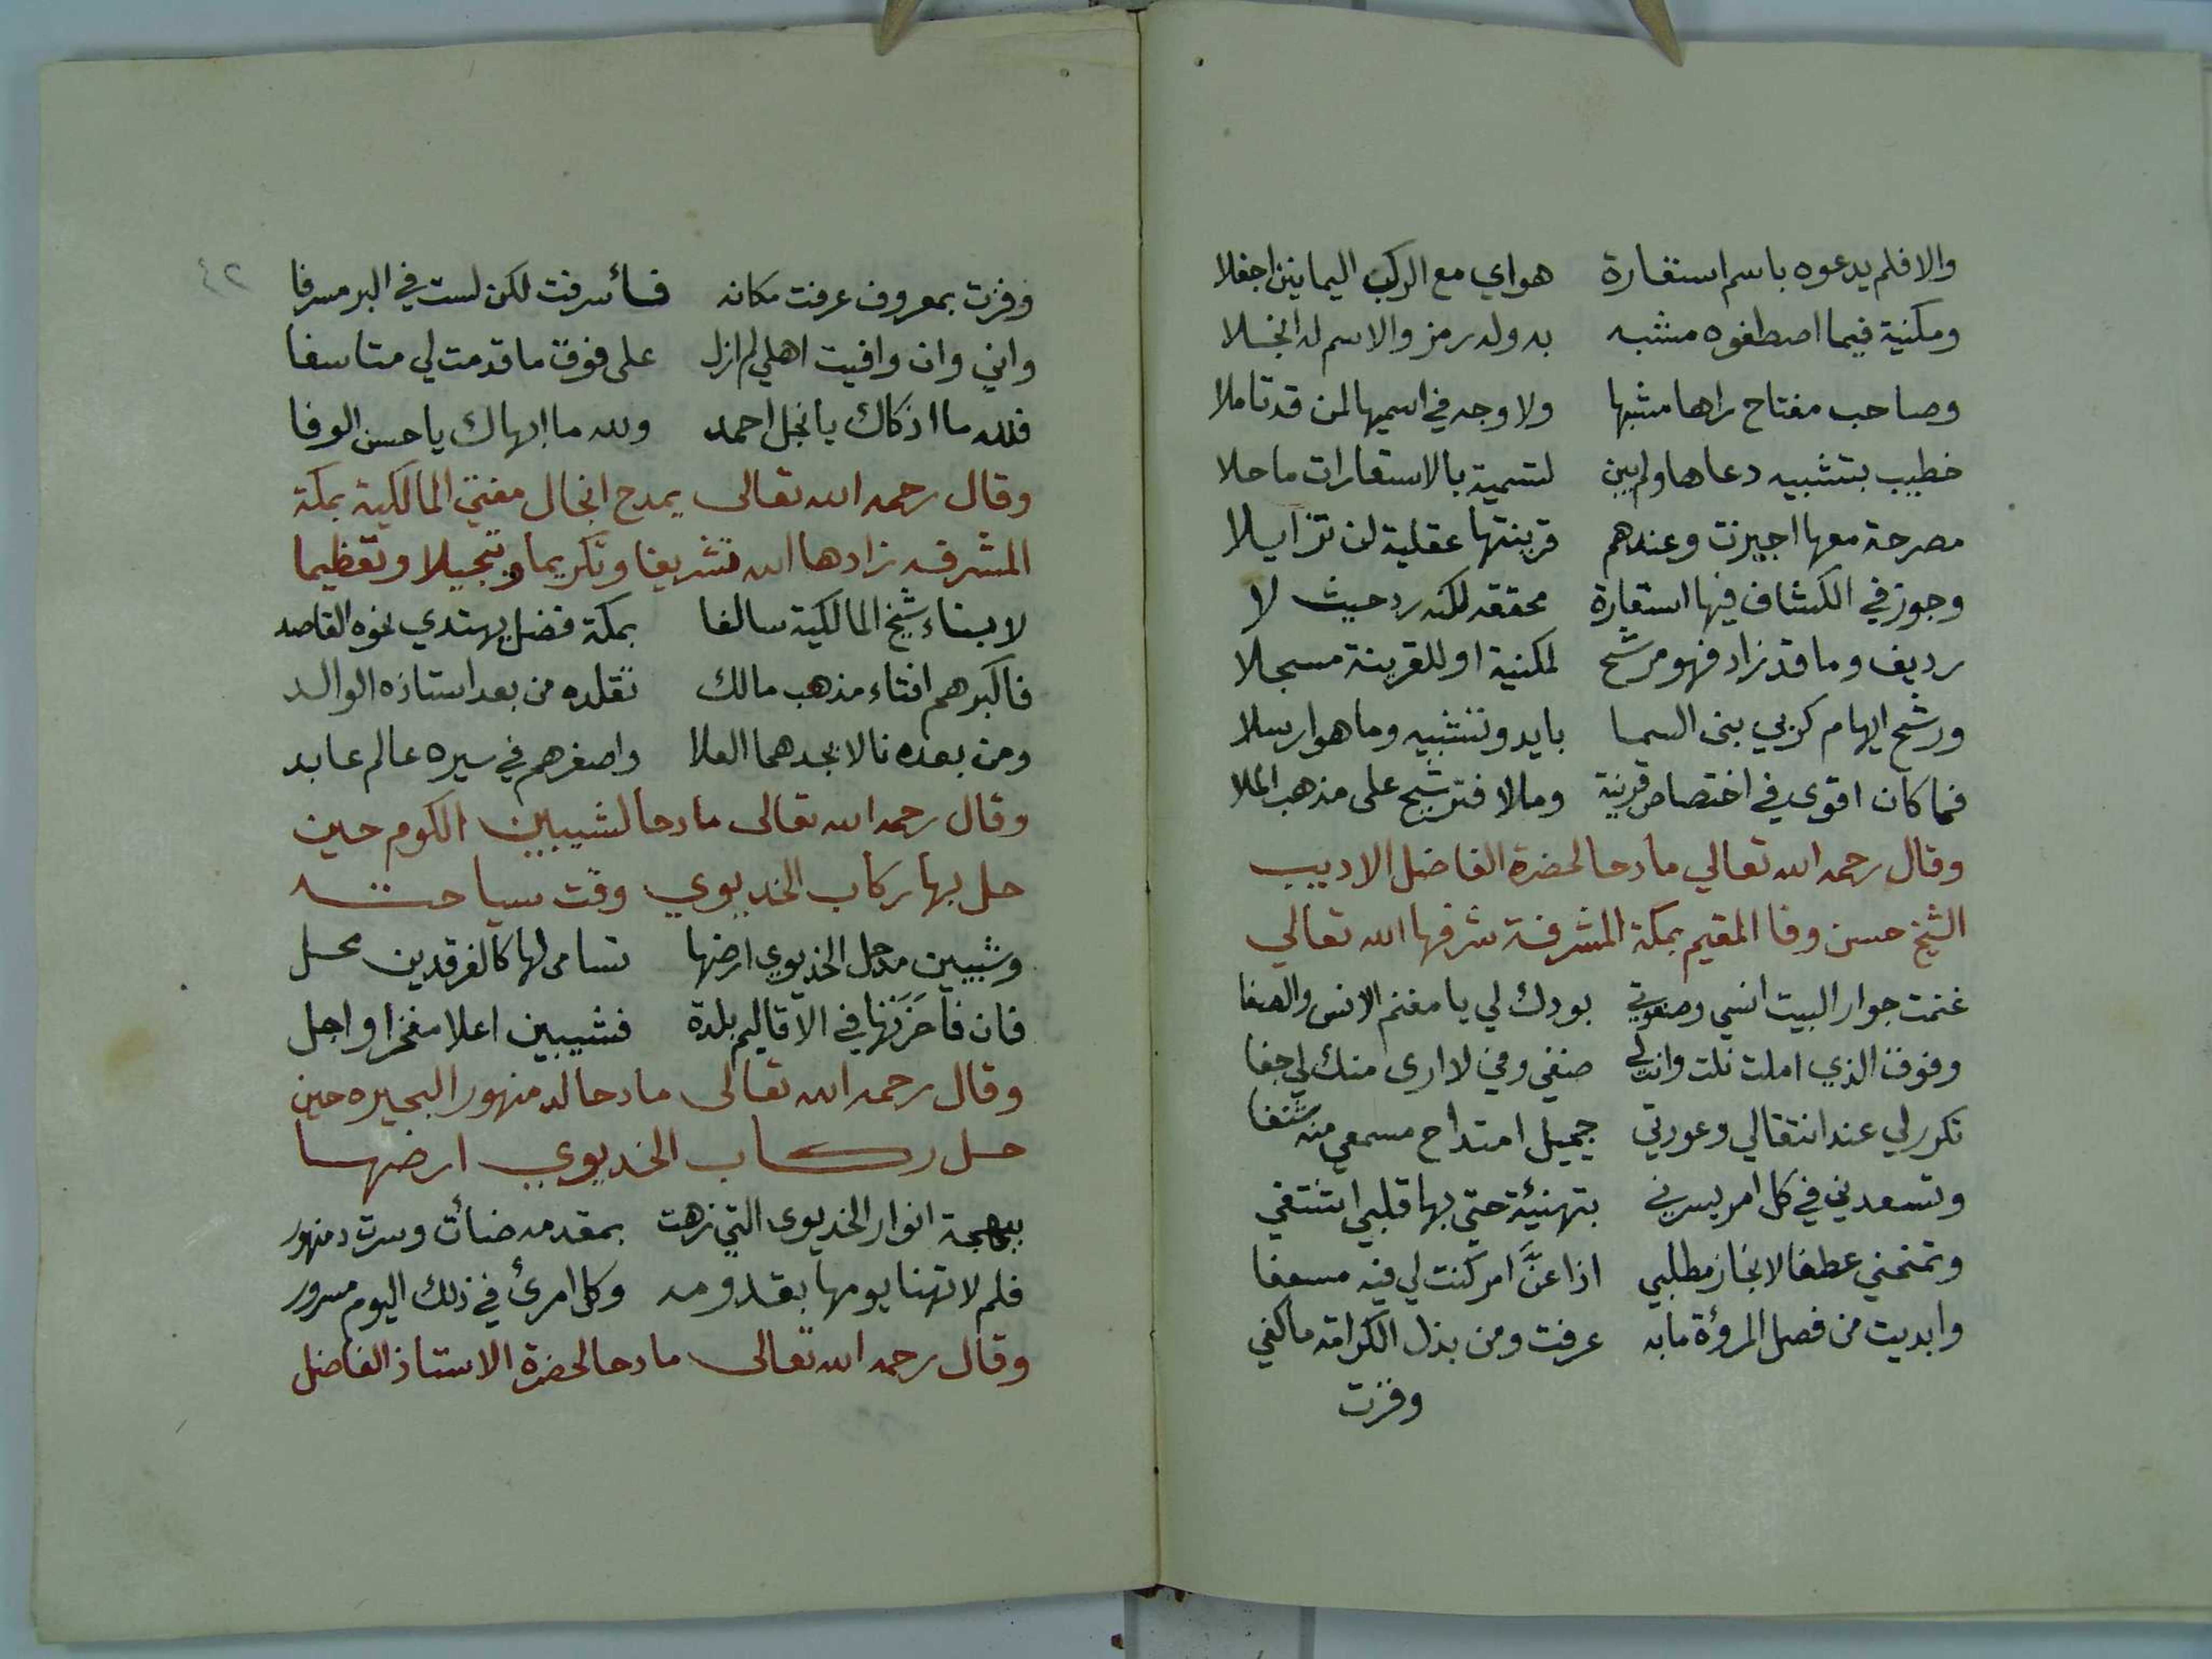 والا فلم يدعوه باسم استعارة هواي مع الركب اليمانين اجفلا
ومكنية فيما اصطفوه مشبه به وله رمز والاسم له انجلا
وصاحب مفتاح راها مشبها ولا وجه في اسميها لمن قد تاملا
خطيب بتشبيه دعاها ولم يبن لتسمية بالاستعارات ما حلا
مصرحة معها اجيزت وعندهم قرينتها عقلية لن تزايلا
وجوز في الكشاف فيها استعارة محققه لكنه رد حيث لا
رديف وما قد زاد فهو مرشح لمكنية او للقرينة مسجلا
ورشح ايهام كربي بنى السما بايد وتشبيه وما هو ارسلا
فما كان اقوى في اختصاص قرينة ومالا فترشيح على مذهب الملا
وقال رحمه الله تعالي مادحا لحضرة الفاضل الاديب
الشيخ حسن وفا المقيم بمكة المشرفة شرفها الله تعالي
غنمت جوار البيت انسي وصفوتي بودك لي يا مغنم الانس والصفا
وفوق الذي املت نلت وانت لي صفي وفي لا ارى منك لي جفا
تكرر لي عند انتقالي وعودتي جميل امتداح مسمعي منه شنفا
وتسعدني في كل امر يسرني بتهنيئة حتي بها قلبي اشتفي
وتمنحني عطفا لانجاز مطلبي اذا عنّ امر كنت لي فيه مسعفا
وابديت من فصل المروءة مابه عرفت ومن بذل الكرامة ما كفي
وفزت
٤٢
وفزت بمعروف عرفت مكانه فأسرفت لكن لست في البر مسرفا
واني وان وافيت اهلي لم ازل على فوق ما قدمت لي متاسفا
فلله ما اذكاك يا نجل احمد ولله ما ابهاك يا حسن الوفا
وقال رحمه الله تعالى يمدح انجال مفتي المالكية بمكة
المشرفه زادها الله تشريفا وتكريما وتبجيلا وتعظيما
لابناء شيخ المالكية سالفا بمكة فضل يهتدي نحوه القاصد
فاكبرهم افتاء مذهب مالك تقلده من بعد استاذه الوالد
ومن بعده نالا بجدهما العلا واصغرهم في سيره عالم عابد
وقال رحمه الله تعالى مادحا لشيبين الكوم حين
حل بها ركاب الخديوي وقت سياحته
وشيبين مذحل الخديوي ارضها تسامى لها كالفرقدين محل
فان فاخرتها في الاقاليم بلدة فشيبين اعلا مفخرا واجل
وقال رحمه الله تعالى مادحا لدمنهور البحيره حين
حل ركاب الخديوي ارضها
ببهجة انوار الخديوى التي زهت بمقدمه ضأت وسرت دمنهور
فلم لا تهنا يومها بقدومه وكل امرئ في ذلك اليوم مسرور
وقال رحمه الله تعالى مادحا لحضرة الاستاذ الفاضل